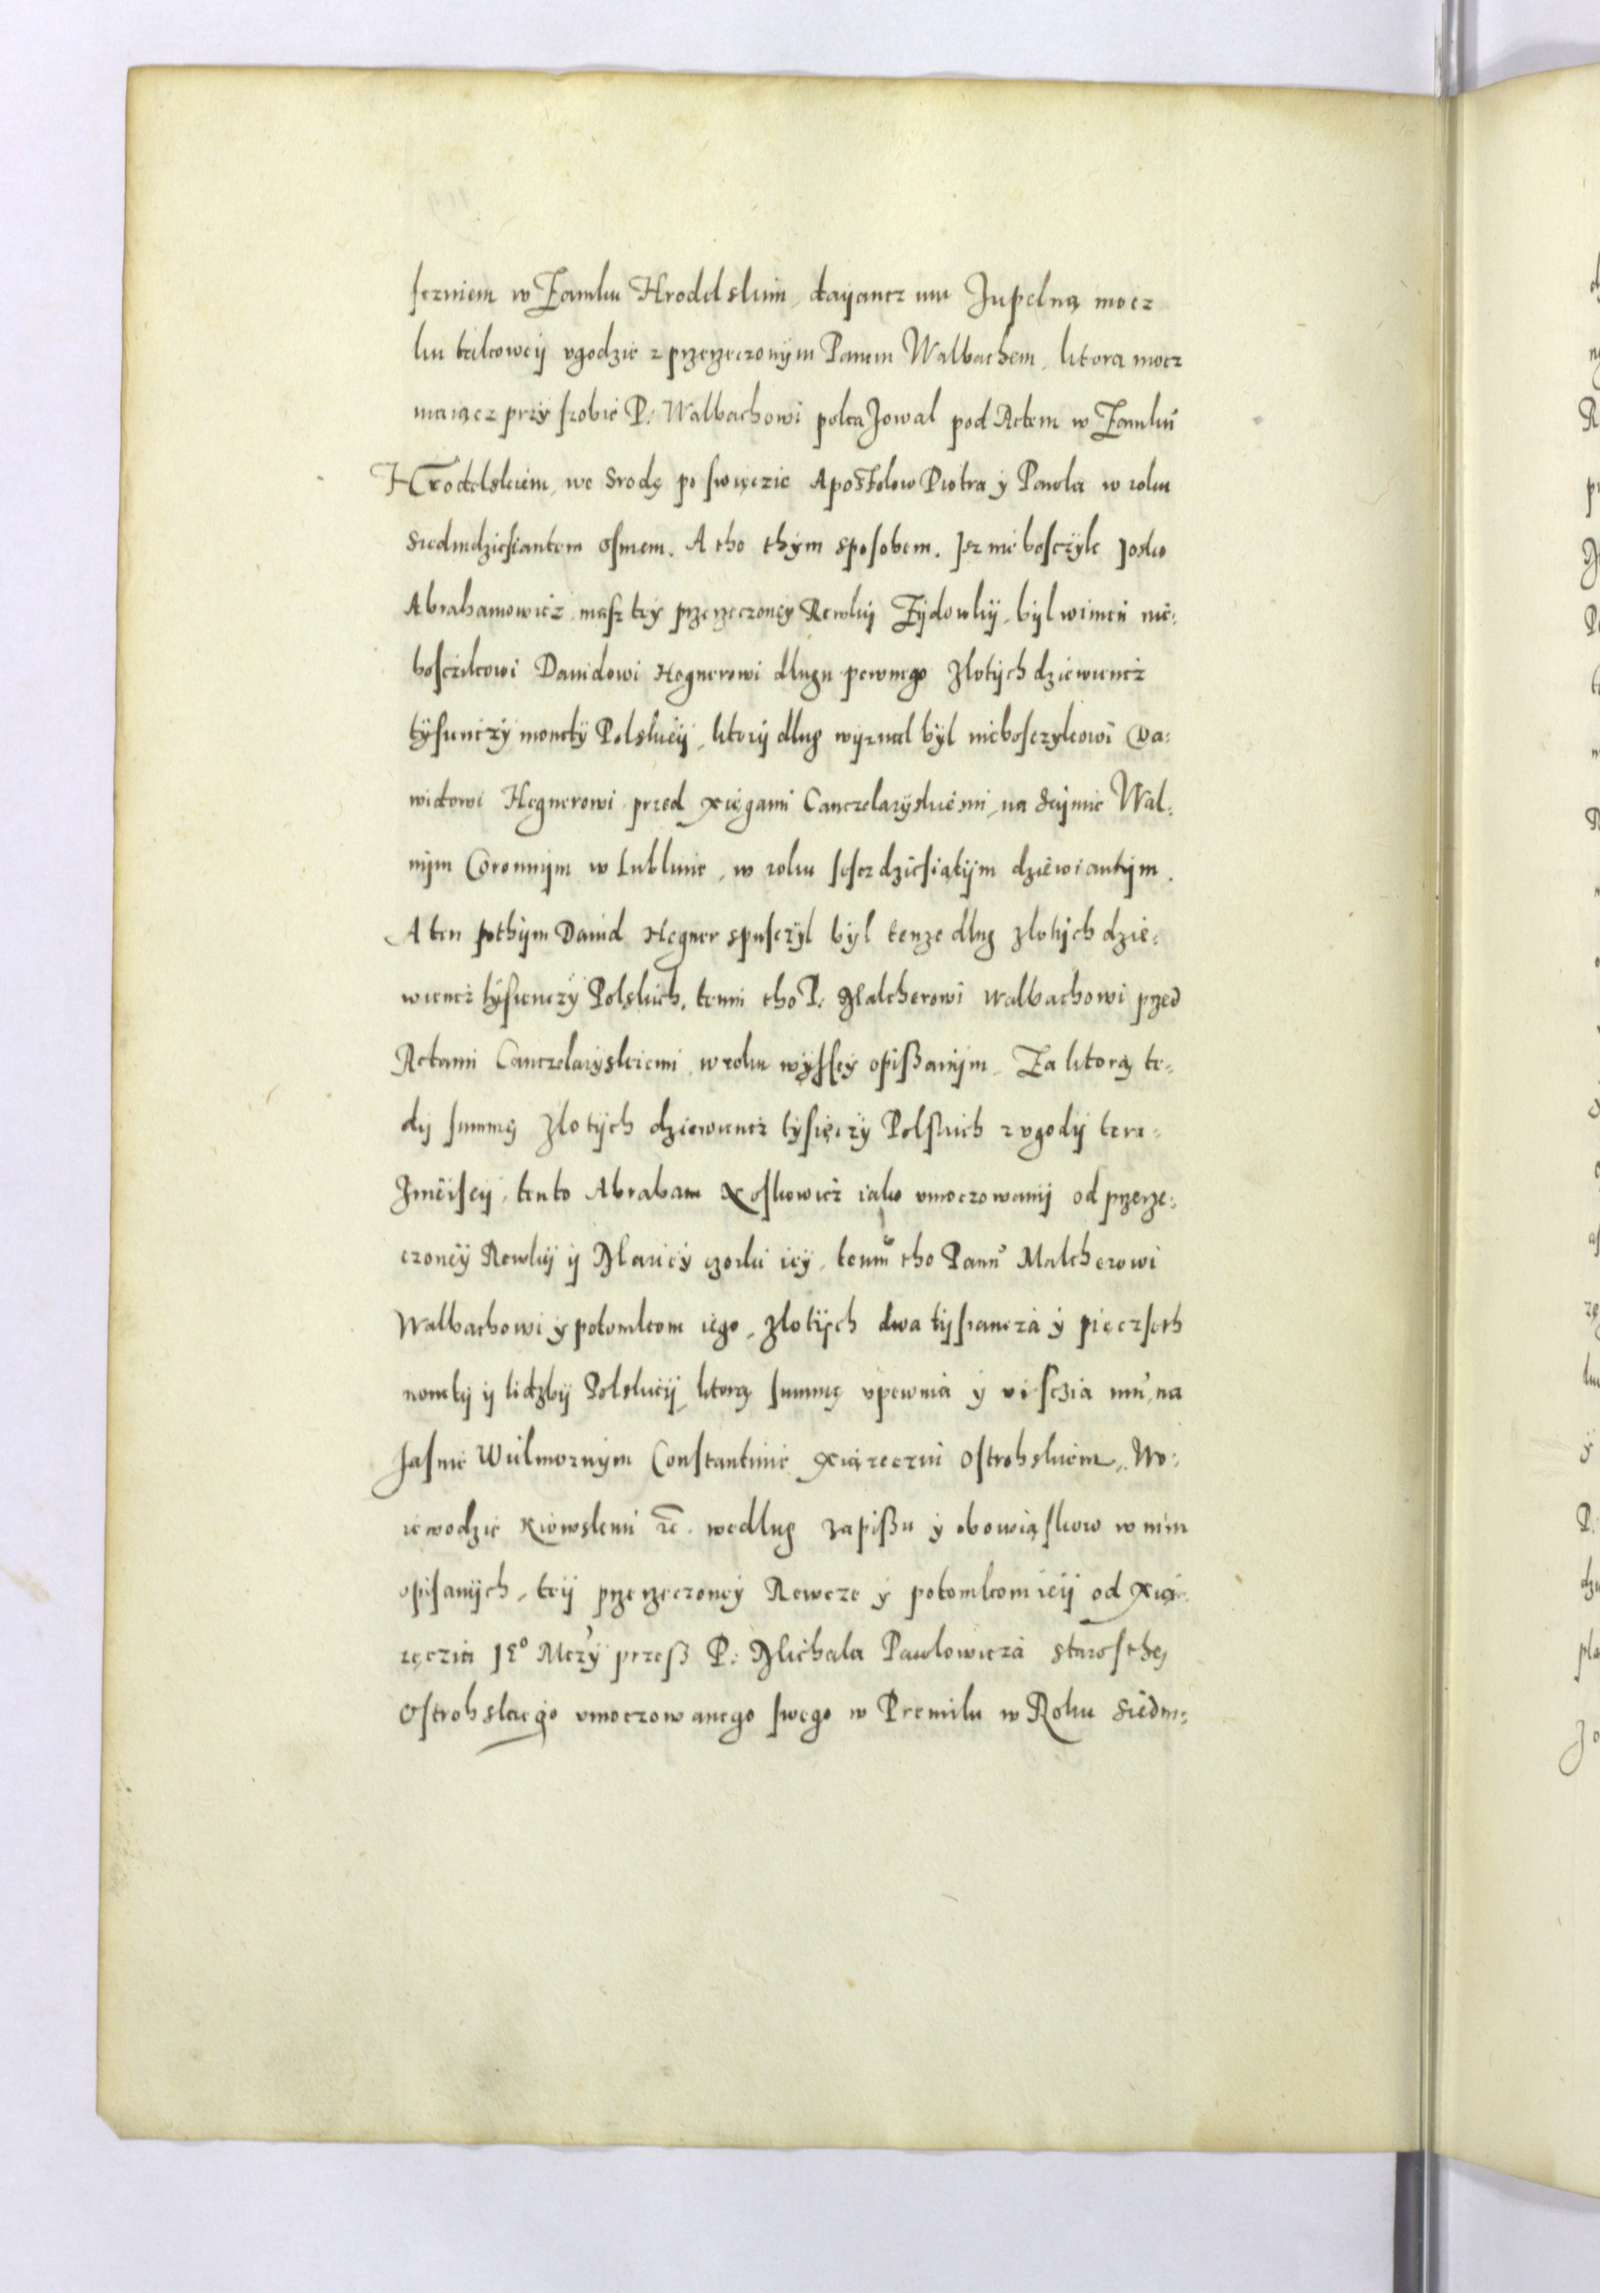 sczniem w Zamku Hrodelskim, dayancz mu Zupelną mocz
ku takowey vgodzie z przerzeczonym Panem Walbachem, ktorą mocz
maiącz przy szobie P: Walbachowi pokazowal pod Actem w Zamku
Hrodelskiem, we Srodę po swięczie Apostolow Piotra y Pawla w roku
Siedmdziesiantem osmem. A tho thym sposobem. Jsz nieboszczyk Josko
Abrahamowicz masz tey przerzeczoney Rewky Zydowky, byl winien nie:
bosczikowi Dauidowi Hegnerowi dlugu pewnego Zlotych dziewiencz
tysienczy monety Polskiey, ktory dlug wyznal byl nieboszczykowi Da:
widowi Hegnerowi przed xięgami Canczelaryskiemi, na Seymie Wal:
nym Coronnym w Lublinie, w roku szescdziesiątym dziewiantym.
A ten pothym Dauid Hegner spusczyl byl tenze dlug zlotych dzie:
wiencz tysienczy Polskich, temu tho P: Malcherowi Walbachowi przed
Actami Canczelaryskiemi w roku wyssey opißanym. Za ktorą te:
dy summę Zlotych dziewiencz tysięczy Polskich z vgody tera:
zmeisey, tento Abraham Xoskowicz iako vmoczowany od przerze:
czoney Rewky y Mariey czorki iey, temu tho Panu Malcherowi
Walbachowi y potomkom iego, zlotych dwa tysiancza y pięczseth
monety y lidzby Polskiey, ktorą summę vpewnia y vi sczia mu, na
Jasnie Wielmoznym Constantinie Xiązeczui Ostrohskiem, Wo:
iewodzie Kiowskem etc. wedlug zapißu y obowiąskow w nim
opisanych, tey przerzeczoney Rewcze y potomkom iey od Xią:
zęczia Je° Mczy przeß P: Michala Pawlowicza starosthę
Ostrohskiego vmoczowanego swego w Premilu w Roku Siedm: